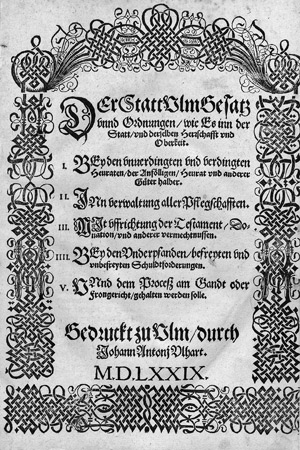 Der Statt Ulm Gesatz
vnnd Ordnungen / wie Es inn der
Statt / vnd derselben Herrschafft vnd
Oberkeit.
I. BEy den vnuerdingten vnd verdingten
Heuraten / der Anfölligen / Heurat vnd anderer
Gütter halber.
II. INn verwaltung aller Pflegschafften.
III. MIt vffrichtung der Testament / Do-
nation / vnd anderer vermechtnussen.
IIII. BEy den Vnderpfanden / befreyten vnd
vnbefreyten Schuldtforderungen.
V. VNnd dem Proceß am Gandt oder
Frongericht / gehalten werden solle.
Gedruckt zu Vlm / durch
Johann Antonj Vlhart.
M.D.LXXIX.